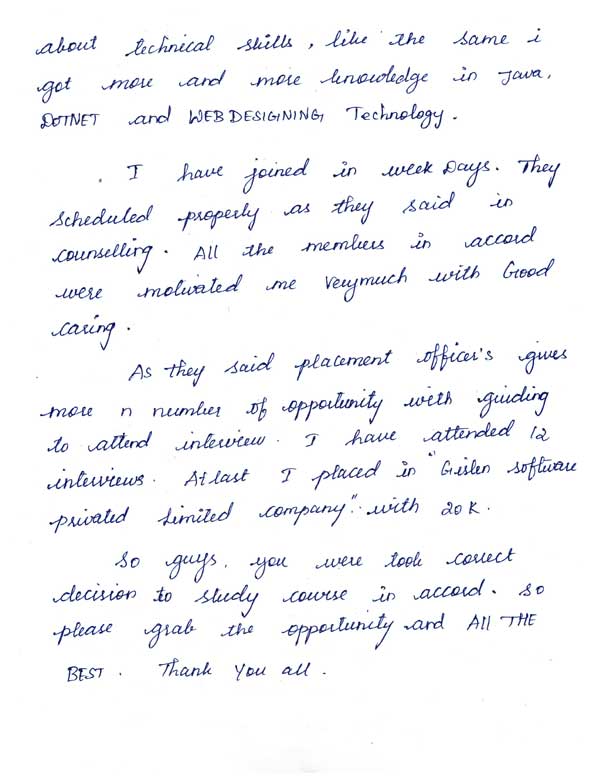 about technical skills, like the same i
got more and more knowledge in Java,
DOTNET and WEB DESIGINING Technology.
I have joined in week Days. They
scheduled properly as they said in
counselling. All the members in accord
were motivated me Verymuch with Good
caring.
As they said placement officer's gives
more n number of opportunity with guiding
to attend interview. I have attended 12
interviews. Atlast I placed in "Gislen software
privated limited company". with 20K.
So guys, you were took correct
decision to study course in accord. so
please grab the opportunity and All THE
BEST. Thank You all.